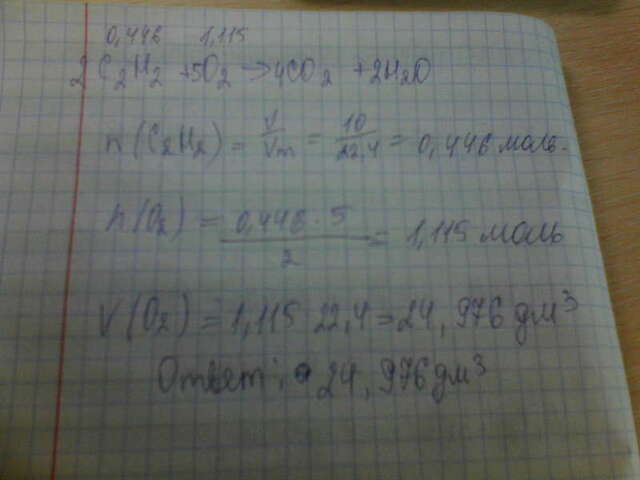 0,446 1,115
2C₂H₂ + 5O₂ → 4CO₂ + 2H₂O
n(C₂H₂) = V/Vm = 10/22,4 = 0,446 моль.
n(O₂) = 0,446 · 5 / 2 = 1,115 моль
V(O₂) = 1,115 · 22,4 = 24,976 дм³
Ответ: 24,976 дм³